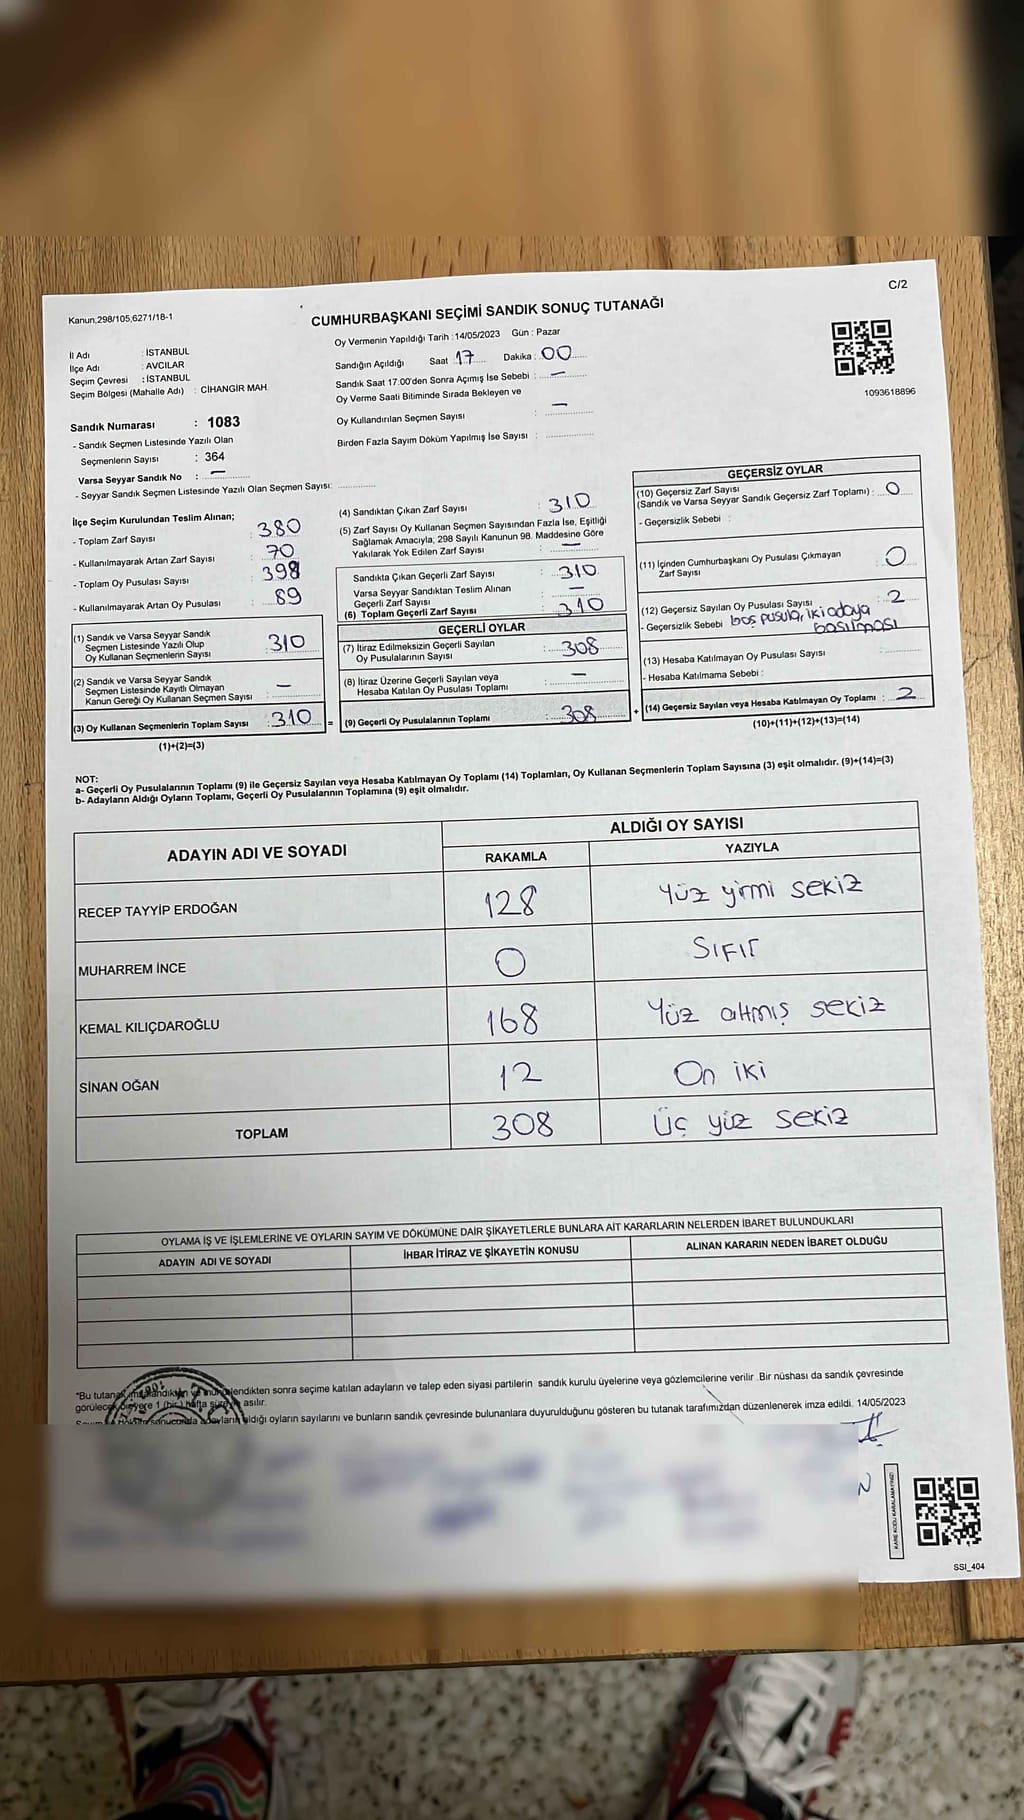 C/2
Kanun,298/105,6271/18-1
CUMHURBAŞKANI SEÇİMİ SANDIK SONUÇ TUTANAĞI
Oy Vermenin Yapıldığı Tarih :14/05/2023 Gün : Pazar
İl Adı : İSTANBUL
İlçe Adı : AVCILAR
Seçim Çevresi : İSTANBUL
Seçim Bölgesi (Mahalle Adı) : CİHANGİR MAH.
Sandığın Açıldığı Saat 17 Dakika : 00
Sandık Saat 17:00'den Sonra Açımış İse Sebebi : —
Oy Verme Saati Bitiminde Sırada Bekleyen ve
Oy Kullandırılan Seçmen Sayısı : —
Birden Fazla Sayım Döküm Yapılmış İse Sayısı :
1093618896
Sandık Numarası : 1083
- Sandık Seçmen Listesinde Yazılı Olan
Seçmenlerin Sayısı : 364
Varsa Seyyar Sandık No : —
- Seyyar Sandık Seçmen Listesinde Yazılı Olan Seçmen Sayısı:
İlçe Seçim Kurulundan Teslim Alınan;
- Toplam Zarf Sayısı : 380
- Kullanılmayarak Artan Zarf Sayısı : 70
- Toplam Oy Pusulası Sayısı : 398
- Kullanılmayarak Artan Oy Pusulası : 89
(1) Sandık ve Varsa Seyyar Sandık
Seçmen Listesinde Yazılı Olup
Oy Kullanan Seçmenlerin Sayısı : 310
(2) Sandık ve Varsa Seyyar Sandık
Seçmen Listesinde Kayıtlı Olmayan
Kanun Gereği Oy Kullanan Seçmen Sayısı : —
(3) Oy Kullanan Seçmenlerin Toplam Sayısı : 310 =
(1)+(2)=(3)
(4) Sandıktan Çıkan Zarf Sayısı : 310
(5) Zarf Sayısı Oy Kullanan Seçmen Sayısından Fazla İse, Eşitliği
Sağlamak Amacıyla, 298 Sayılı Kanunun 98. Maddesine Göre
Yakılarak Yok Edilen Zarf Sayısı : —
Sandıkta Çıkan Geçerli Zarf Sayısı : 310
Varsa Seyyar Sandıktan Teslim Alınan
Geçerli Zarf Sayısı : —
(6) Toplam Geçerli Zarf Sayısı : 310
GEÇERLİ OYLAR
(7) İtiraz Edilmeksizin Geçerli Sayılan
Oy Pusulalarının Sayısı : 308
(8) İtiraz Üzerine Geçerli Sayılan veya
Hesaba Katılan Oy Pusulası Toplamı : —
(9) Geçerli Oy Pusulalarının Toplamı : 308 +
GEÇERSİZ OYLAR
(10) Geçersiz Zarf Sayısı
(Sandık ve Varsa Seyyar Sandık Geçersiz Zarf Toplamı) : 0
- Geçersizlik Sebebi :
(11) İçinden Cumhurbaşkanı Oy Pusulası Çıkmayan
Zarf Sayısı : 0
(12) Geçersiz Sayılan Oy Pusulası Sayısı : 2
- Geçersizlik Sebebi : boş pusula, iki adaya
basılması
(13) Hesaba Katılmayan Oy Pusulası Sayısı :
- Hesaba Katılmama Sebebi :
(14) Geçersiz Sayılan veya Hesaba Katılmayan Oy Toplamı : 2
(10)+(11)+(12)+(13)=(14)
NOT:
a- Geçerli Oy Pusulalarının Toplamı (9) ile Geçersiz Sayılan veya Hesaba Katılmayan Oy Toplamı (14) Toplamları, Oy Kullanan Seçmenlerin Toplam Sayısına (3) eşit olmalıdır. (9)+(14)=(3)
b- Adayların Aldığı Oyların Toplamı, Geçerli Oy Pusulalarının Toplamına (9) eşit olmalıdır.
ADAYIN ADI VE SOYADI
ALDIĞI OY SAYISI
RAKAMLA YAZIYLA
RECEP TAYYİP ERDOĞAN 128 Yüz yirmi sekiz
MUHARREM İNCE 0 Sıfır
KEMAL KILIÇDAROĞLU 168 Yüz altmış sekiz
SİNAN OĞAN 12 On iki
TOPLAM 308 Üç yüz sekiz
OYLAMA İŞ VE İŞLEMLERİNE VE OYLARIN SAYIM VE DÖKÜMÜNE DAİR ŞİKAYETLERLE BUNLARA AİT KARARLARIN NELERDEN İBARET BULUNDUKLARI
ADAYIN ADI VE SOYADI İHBAR İTİRAZ VE ŞİKAYETİN KONUSU ALINAN KARARIN NEDEN İBARET OLDUĞU
*Bu tutanak imzalandıktan ve mühürlendikten sonra seçime katılan adayların ve talep eden siyasi partilerin sandık kurulu üyelerine veya gözlemcilerine verilir .Bir nüshası da sandık çevresinde
görülecek bir yere 1 (bir) hafta süreyle asılır.
sonucunda adayların aldığı oyların sayılarını ve bunların sandık çevresinde bulunanlara duyurulduğunu gösteren bu tutanak tarafımızdan düzenlenerek imza edildi. 14/05/2023
KARE KODU KARALAMAYINIZ!
SSI_404